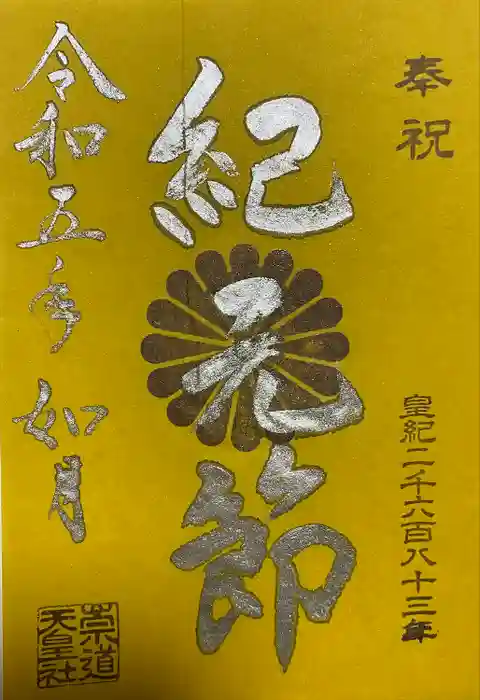 奉祝
皇紀二千六百八十三年
紀元節
令和五年
如月
崇道
天皇社